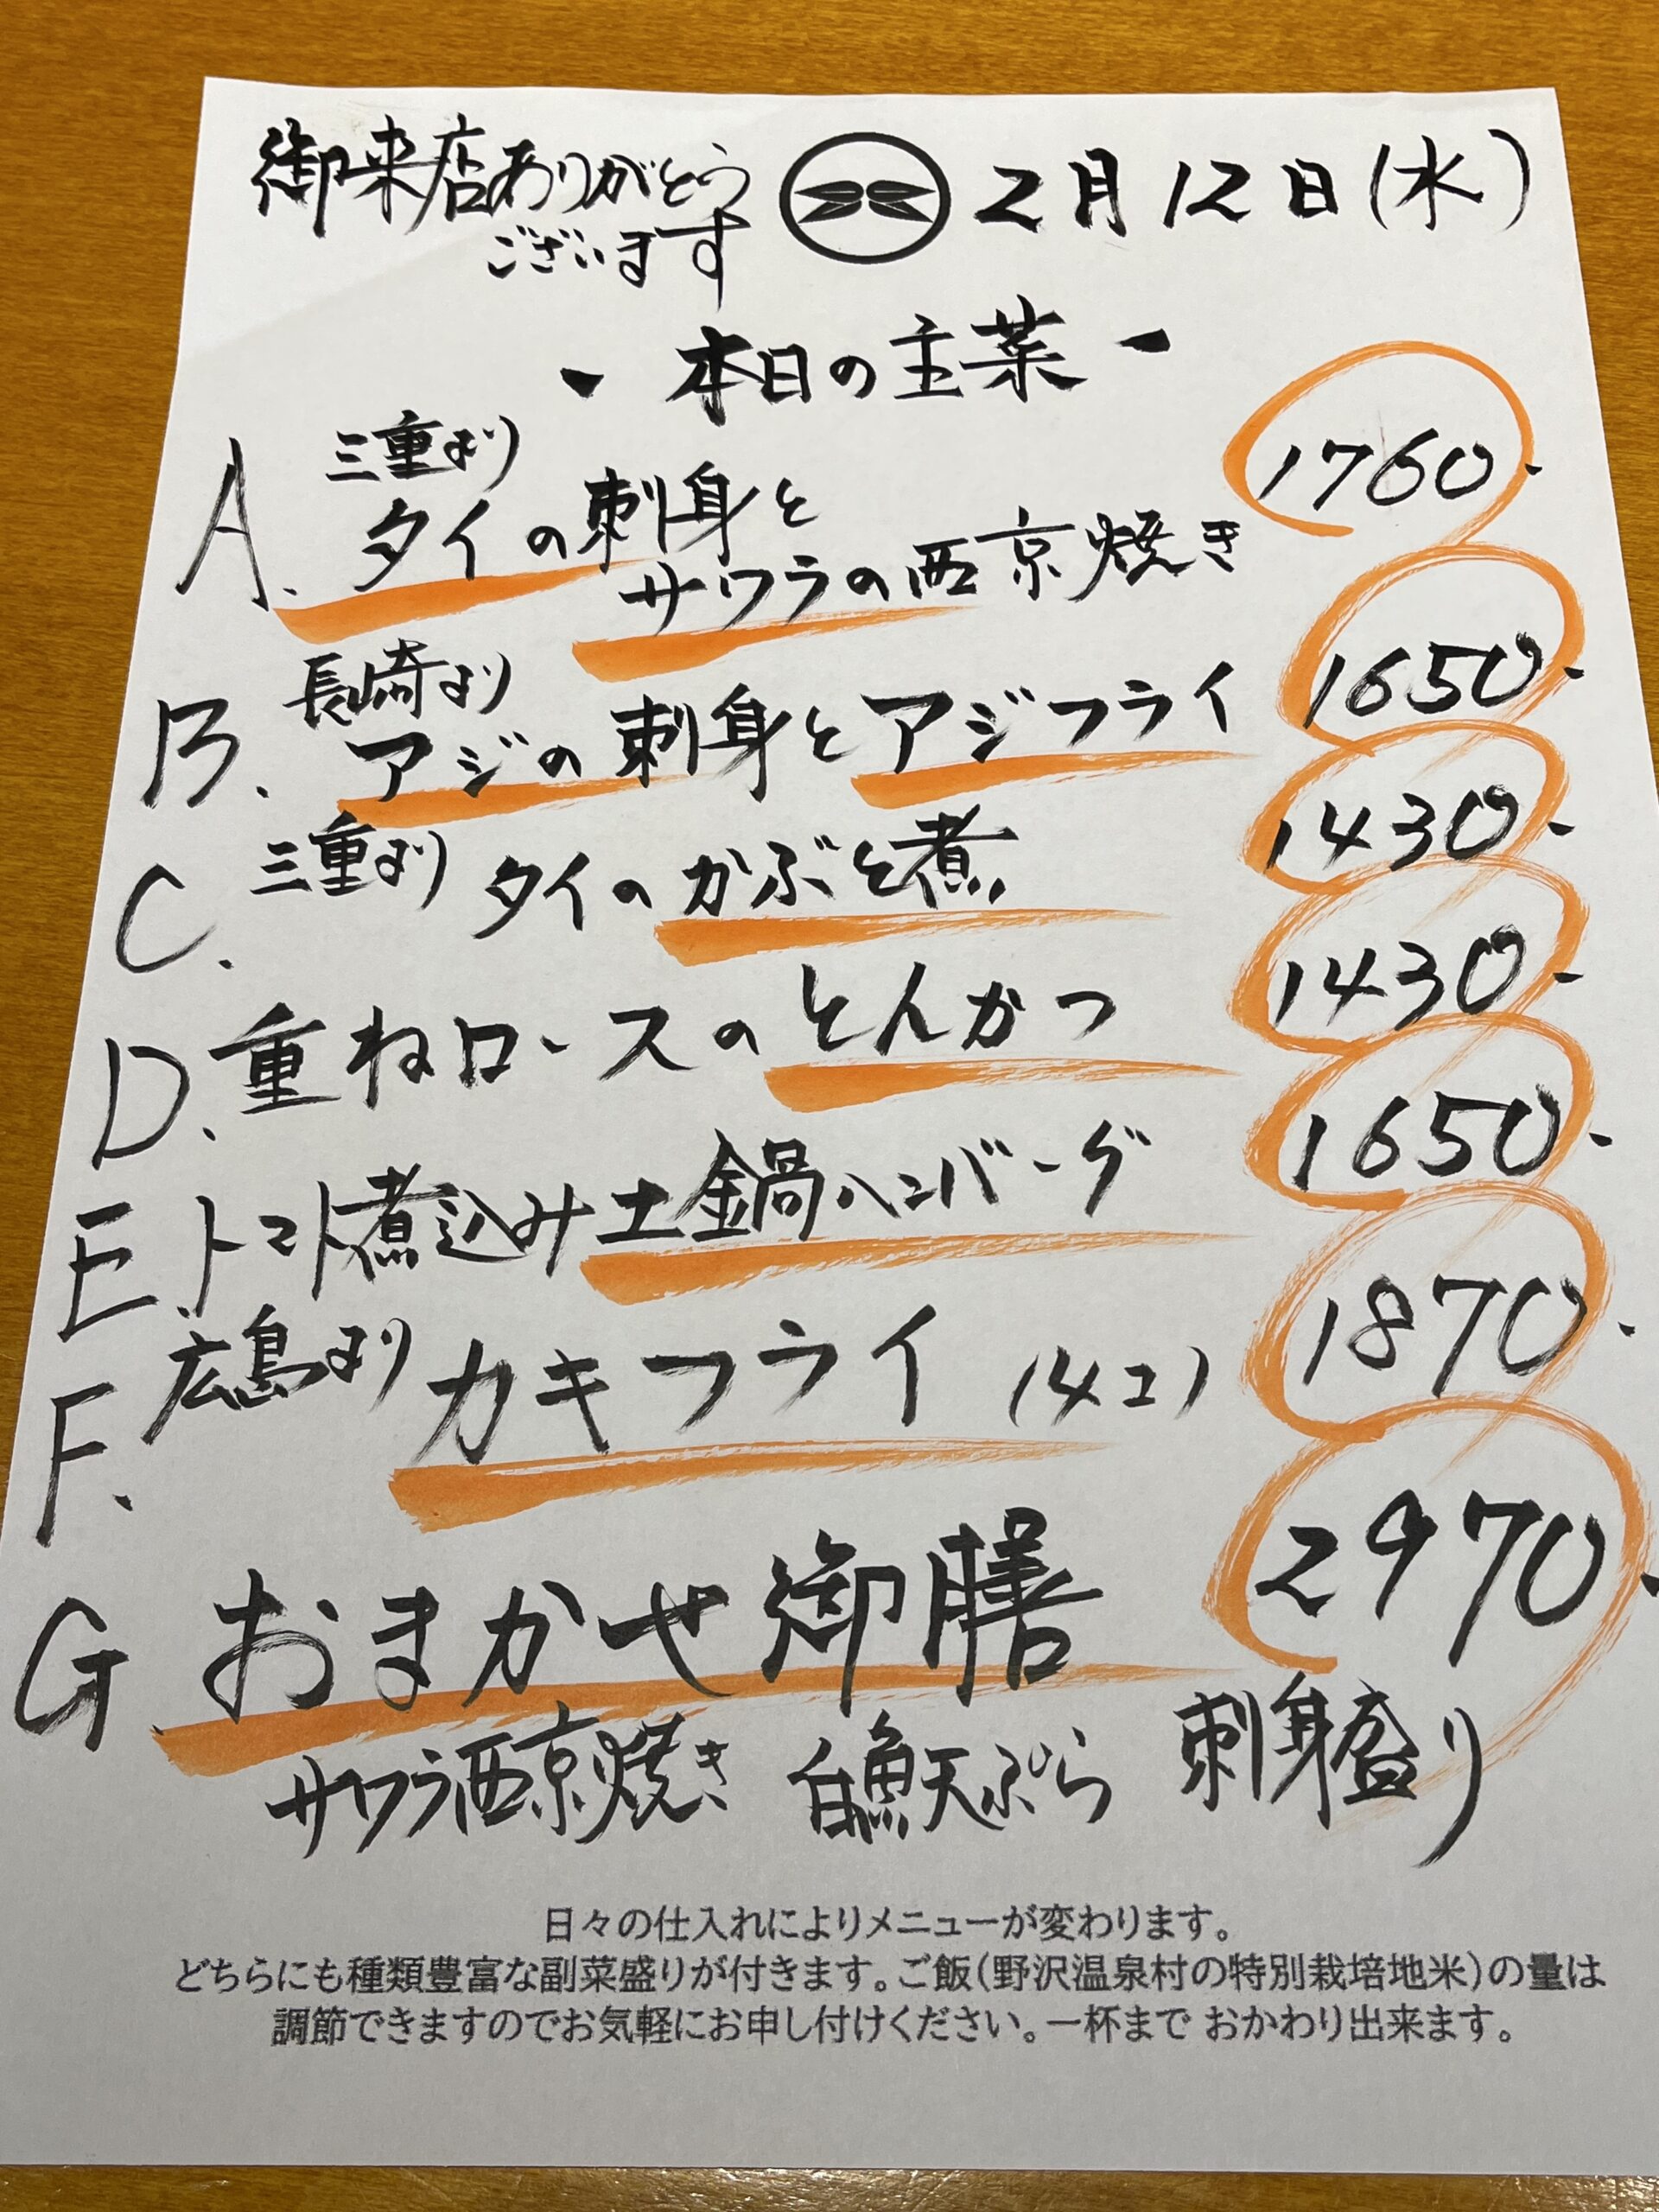 御来店ありがとう
ございます
2月12日(水)
- 本日の主菜 -
A. 三重より
タイの刺身と
サワラの西京焼き 1760.
B. 長崎より
アジの刺身とアジフライ 1650.
C. 三重より タイのかぶと煮 1430.
D. 重ねロースのとんかつ 1430.
E. トマト煮込み土鍋ハンバーグ 1650.
F. 広島より カキフライ (4コ) 1870.
G おまかせ御膳 2970.
サワラ西京焼き 白魚天ぷら 刺身盛り
日々の仕入れによりメニューが変わります。
どちらにも種類豊富な副菜盛りが付きます。ご飯(野沢温泉村の特別栽培地米)の量は
調節できますのでお気軽にお申し付けください。一杯まで おかわり出来ます。